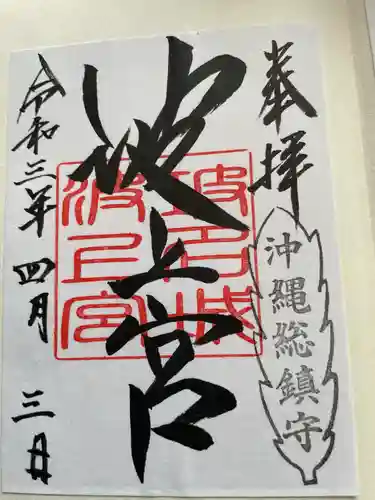 奉拝
沖縄総鎮守
波上宮
波上宮
令和三年四月三日